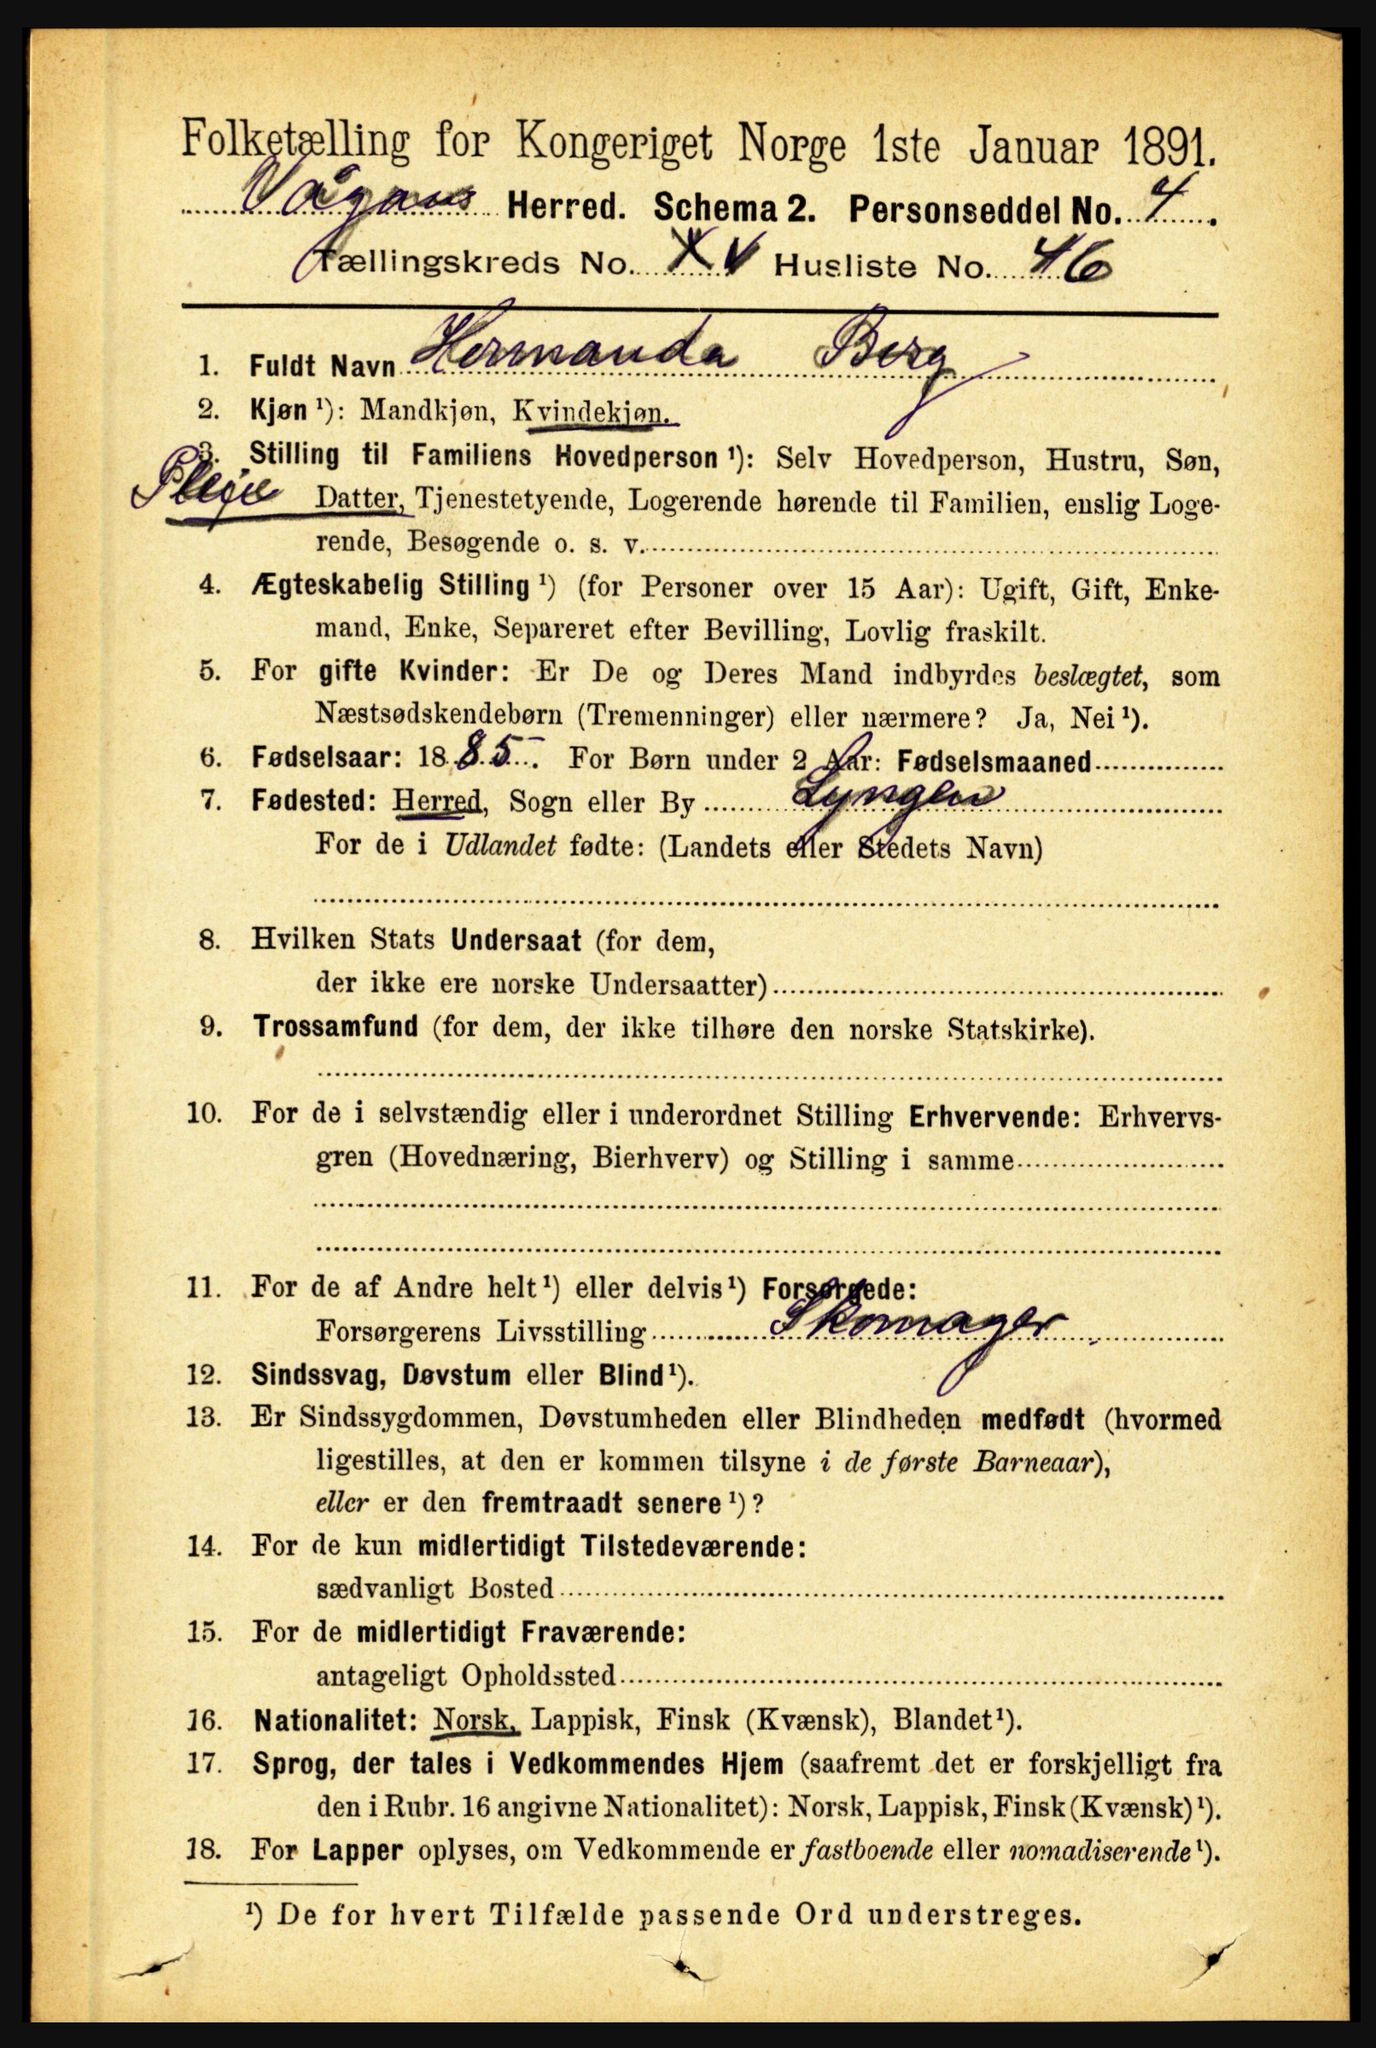 Folketælling for Kongeriget Norge 1ste Januar 1891.
Vågans Herred. Schema 2. Personseddel No. 4.
Tællingskreds No. XV Husliste No. 46
1. Fuldt Navn Hermanda Berg
2. Kjøn ¹): Mandkjøn, Kvindekjøn.
3. Stilling til Familiens Hovedperson ¹): Selv Hovedperson, Hustru, Søn,
Pleje Datter, Tjenestetyende, Logerende hørende til Familien, enslig Loge-
rende, Besøgende o. s. v.
4. Ægteskabelig Stilling ¹) (for Personer over 15 Aar): Ugift, Gift, Enke-
mand, Enke, Separeret efter Bevilling, Lovlig fraskilt.
5. For gifte Kvinder: Er De og Deres Mand indbyrdes beslægtet, som
Næstsødskendebørn (Tremenninger) eller nærmere? Ja, Nei ¹).
6. Fødselsaar: 1885. For Børn under 2 Aar: Fødselsmaaned
7. Fødested: Herred, Sogn eller By Lyngen
For de i Udlandet fødte: (Landets eller Stedets Navn)
8. Hvilken Stats Undersaat (for dem,
der ikke ere norske Undersaatter)
9. Trossamfund (for dem, der ikke tilhøre den norske Statskirke).
10. For de i selvstændig eller i underordnet Stilling Erhvervende: Erhvervs-
gren (Hovednæring, Bierhverv) og Stilling i samme
11. For de af Andre helt ¹) eller delvis ¹) Forsørgede:
Forsørgerens Livsstilling Skomager
12. Sindssvag, Døvstum eller Blind ¹).
13. Er Sindssygdommen, Døvstumheden eller Blindheden medfødt (hvormed
ligestilles, at den er kommen tilsyne i de første Barneaar),
eller er den fremtraadt senere ¹)?
14. For de kun midlertidigt Tilstedeværende:
sædvanligt Bosted
15. For de midlertidigt Fraværende:
antageligt Opholdssted
16. Nationalitet: Norsk, Lappisk, Finsk (Kvænsk), Blandet ¹).
17. Sprog, der tales i Vedkommendes Hjem (saafremt det er forskjelligt fra
den i Rubr. 16 angivne Nationalitet): Norsk, Lappisk, Finsk (Kvænsk) ¹).
18. For Lapper oplyses, om Vedkommende er fastboende eller nomadiserende ¹).
¹) De for hvert Tilfælde passende Ord understreges.